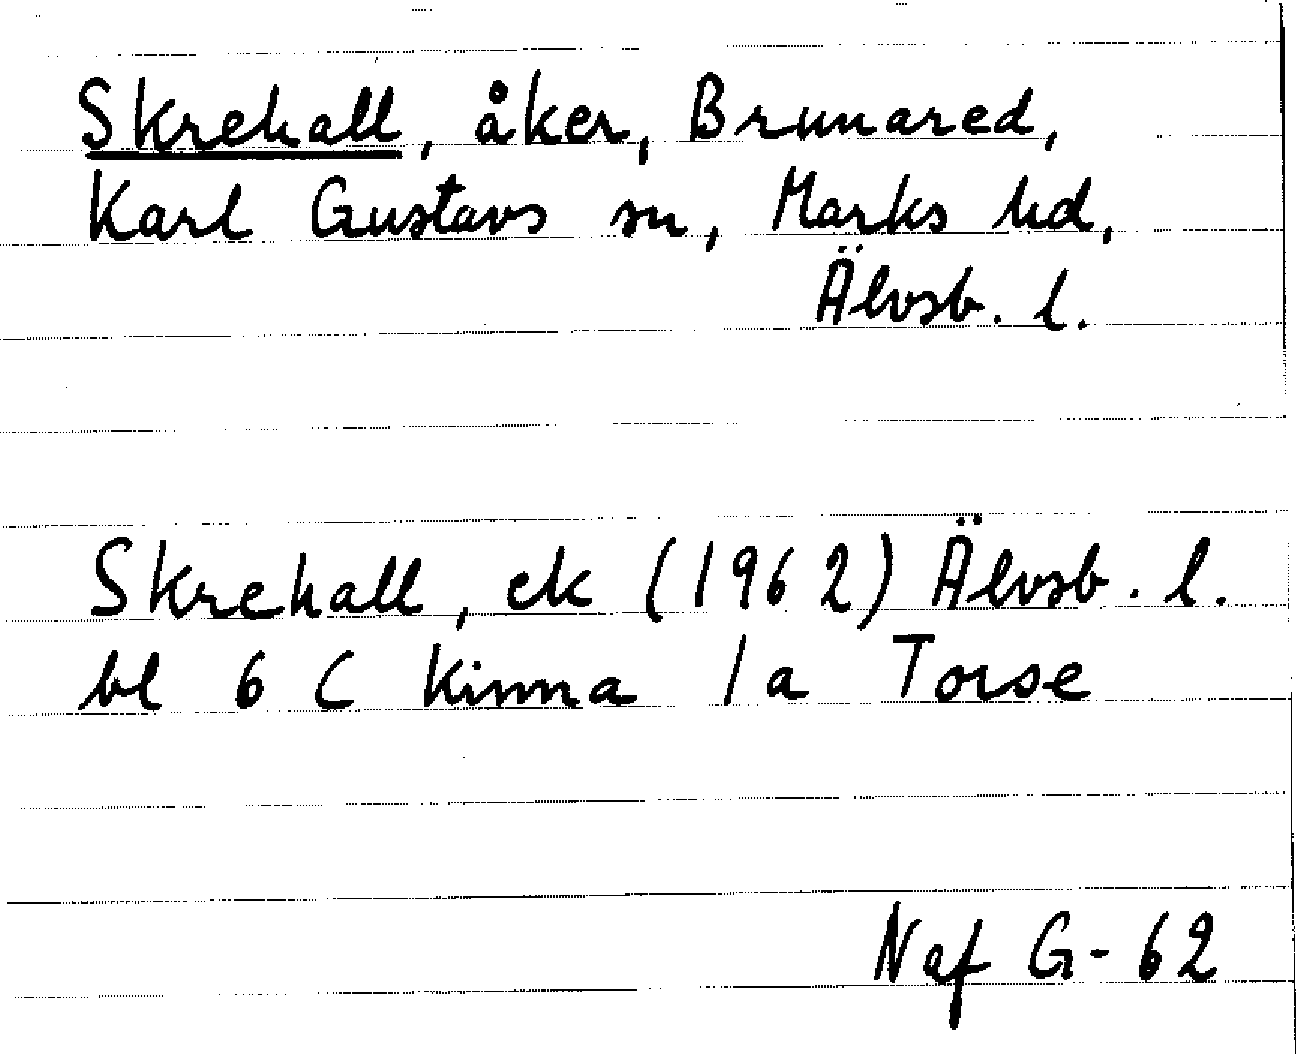 Skrehall, åker, Brunared,
Karl Gustavs sn, Marks hd,
Älvsb. l.
Skrehall, ek (1962) Älvsb. l.
bl 6 C Kinna 1a Torse
Naf G-62